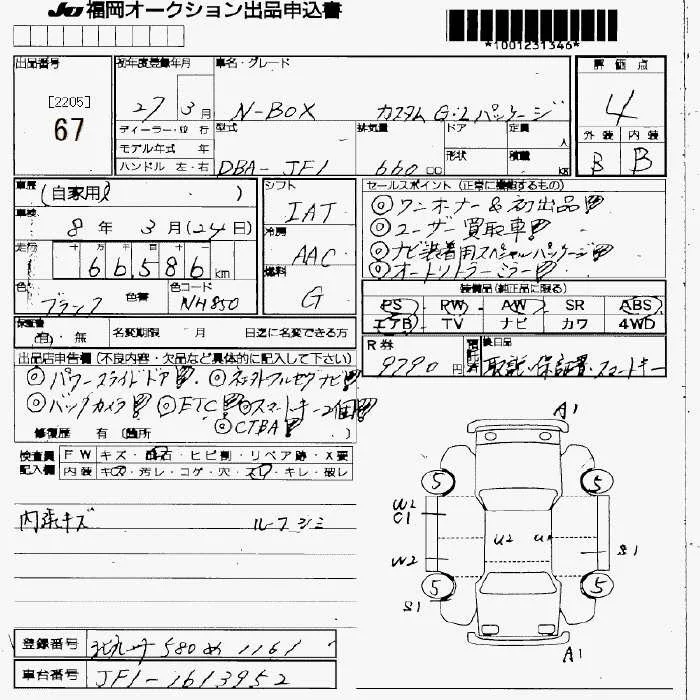 JU 福岡オークション出品申込書
*1001231346*
出品番号
[2205]
67
初年度登録年月
27 3月
車名・グレード
N-BOX カスタム G・Lパッケージ
評価点
4
外装 内装
B B
ディーラー・並行
モデル年式 年
ハンドル 左・右
型式
DBA-JF1
排気量
660 cc
ドア
形状
定員
人
積載
kg
車歴
(自家用)
車検
8年 3月(24日)
走行
十 万 千 百 十
66,586 km
色
ブラック
色替
色コード
NH850
シフト
IAT
冷房
AAC
燃料
G
セールスポイント (正常に機能するもの)
◎ワンオーナー&初出品
◎ユーザー買取車
◎ナビ装着用スペシャルパッケージ
◎オートリトラミラー
装備品(純正品に限る)
PS PW AW SR ABS
エアB TV ナビ カワ 4WD
保証書
有・無
名変期限 月 日迄に名変できる方
R券
9790円
後日品
取説・保証書・スマートキー
出品店申告欄 (不良内容・欠品など具体的に記入して下さい)
◎パワースライドドア ◎ネットフルセグナビ
◎バックカメラ ◎ETC ◎スマートキー2個
◎CTBA
修復歴 有 (箇所
検査員 FW キズ・飛石・ヒビ割・リペア跡・X要
記入欄 内装 キズ・汚レ・コゲ・穴・スレ・キレ・破レ
内張キズ ルーフシミ
A1
5 5
W2
C1
U2 U1
W2 S1
5 5
S1
A1
登録番号
580 め 1161
車台番号
JF1-1613952